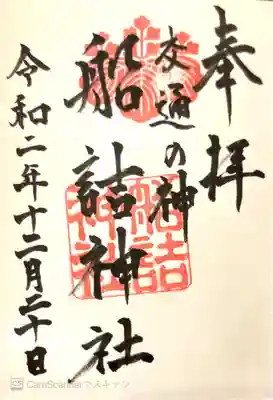 奉拝
交通の神
船詰神社
船詰
神社
令和二年十二月二十日
CamScannerでスキャン